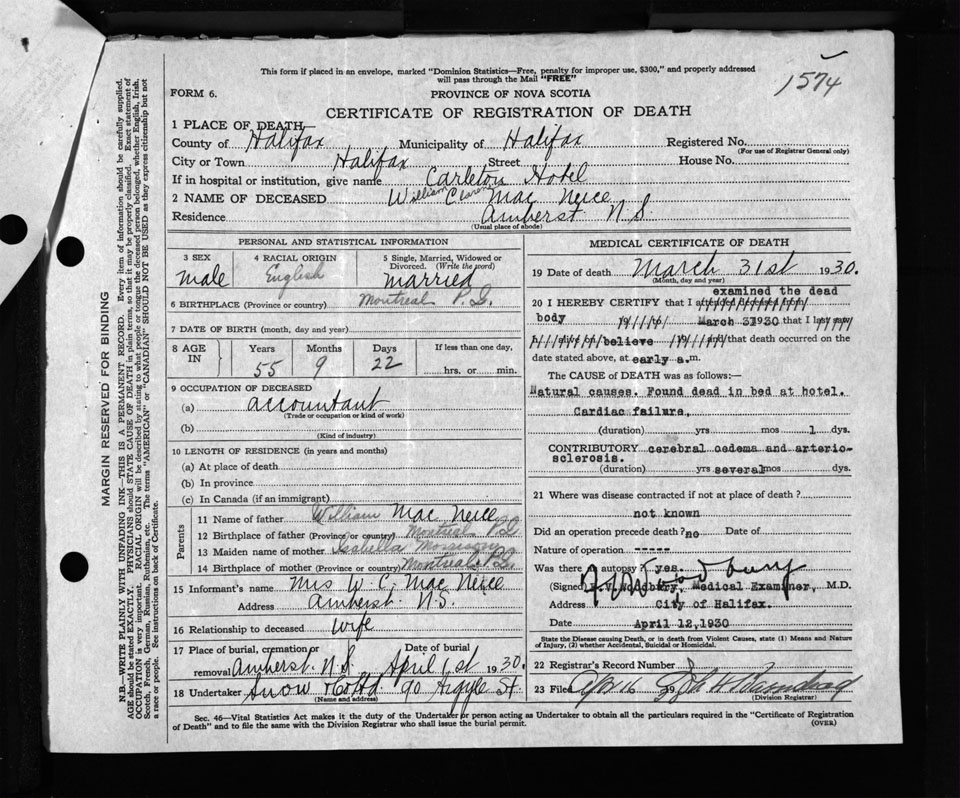 1574
This form if placed in an envelope, marked "Dominion Statistics—Free, penalty for improper use, $300," and properly addressed
will pass through the Mail "FREE"
FORM 6.
PROVINCE OF NOVA SCOTIA
CERTIFICATE OF REGISTRATION OF DEATH
1 PLACE OF DEATH
County of Halifax Municipality of Halifax Registered No.
(For use of Registrar General only)
City or Town Halifax Street House No.
If in hospital or institution, give name Carleton Hotel
2 NAME OF DECEASED William Mac Neice
Residence Amherst N.S.
(Usual place of abode)
PERSONAL AND STATISTICAL INFORMATION
3 SEX
male
4 RACIAL ORIGIN
English
5 Single, Married, Widowed or
Divorced. (Write the word)
married
6 BIRTHPLACE (Province or country) Montreal P.Q.
7 DATE OF BIRTH (month, day and year)
8 AGE IN
Years Months Days If less than one day,
55 9 22 hrs. or min.
9 OCCUPATION OF DECEASED
(a) accountant
(Trade or occupation or kind of work)
(b)
(Kind of industry)
10 LENGTH OF RESIDENCE (in years and months)
(a) At place of death
(b) In province
(c) In Canada (if an immigrant)
Parents
11 Name of father William Mac Neice
12 Birthplace of father (Province or country) Montreal P.Q.
13 Maiden name of mother Isabella
14 Birthplace of mother Montreal P.Q.
15 Informant's name Mrs W. C. Mac Neice
Address Amherst N.S.
16 Relationship to deceased wife
17 Place of burial, cremation or Date of burial
removal Amherst. N.S. April 1st 1930.
18 Undertaker Snow & Co Ltd 90 Argyle St.
(Name and address)
MEDICAL CERTIFICATE OF DEATH
19 Date of death March 31st 1930.
(Month, day and year)
examined the dead
20 I HEREBY CERTIFY that I attended deceased from
body March 31 1930 that I last saw
believe and that death occurred on the
date stated above, at early a.m.
The CAUSE of DEATH was as follows:—
Natural causes. Found dead in bed at hotel.
Cardiac failure,
(duration) yrs mos 1 dys.
CONTRIBUTORY cerebral oedema and arterio-
sclerosis.
(duration) yrs several mos dys.
21 Where was disease contracted if not at place of death?
not known
Did an operation precede death? no Date of
Nature of operation -----
Was there an autopsy? yes.
(Signed) Woodbury, Medical Examiner, M.D.
Address City of Halifax.
Date April 12, 1930
State the Disease causing Death, or in death from Violent Causes, state (1) Means and Nature
of Injury, (2) whether Accidental, Suicidal or Homicidal.
22 Registrar's Record Number
23 Filed Apr 16
(Division Registrar)
Sec. 46—Vital Statistics Act makes it the duty of the Undertaker or person acting as Undertaker to obtain all the particulars required in the "Certificate of Registration
of Death" and to file the same with the Division Registrar who shall issue the burial permit.
(OVER)
MARGIN RESERVED FOR BINDING
N.B.—WRITE PLAINLY WITH UNFADING INK—THIS IS A PERMANENT RECORD. Every item of information should be carefully supplied.
AGE should be stated EXACTLY. PHYSICIANS should STATE CAUSE OF DEATH in plain terms, so that it may be properly classified. Exact statement of
OCCUPATION is very important. RACIAL ORIGIN will be described by stating to what people or tongue the deceased person belonged, whether English, Irish,
Scotch, French, German, Russian, Ruthenian, etc. The terms "AMERICAN" or "CANADIAN" SHOULD NOT BE USED as they express citizenship but not
a race or people. See instructions on back of Certificate.